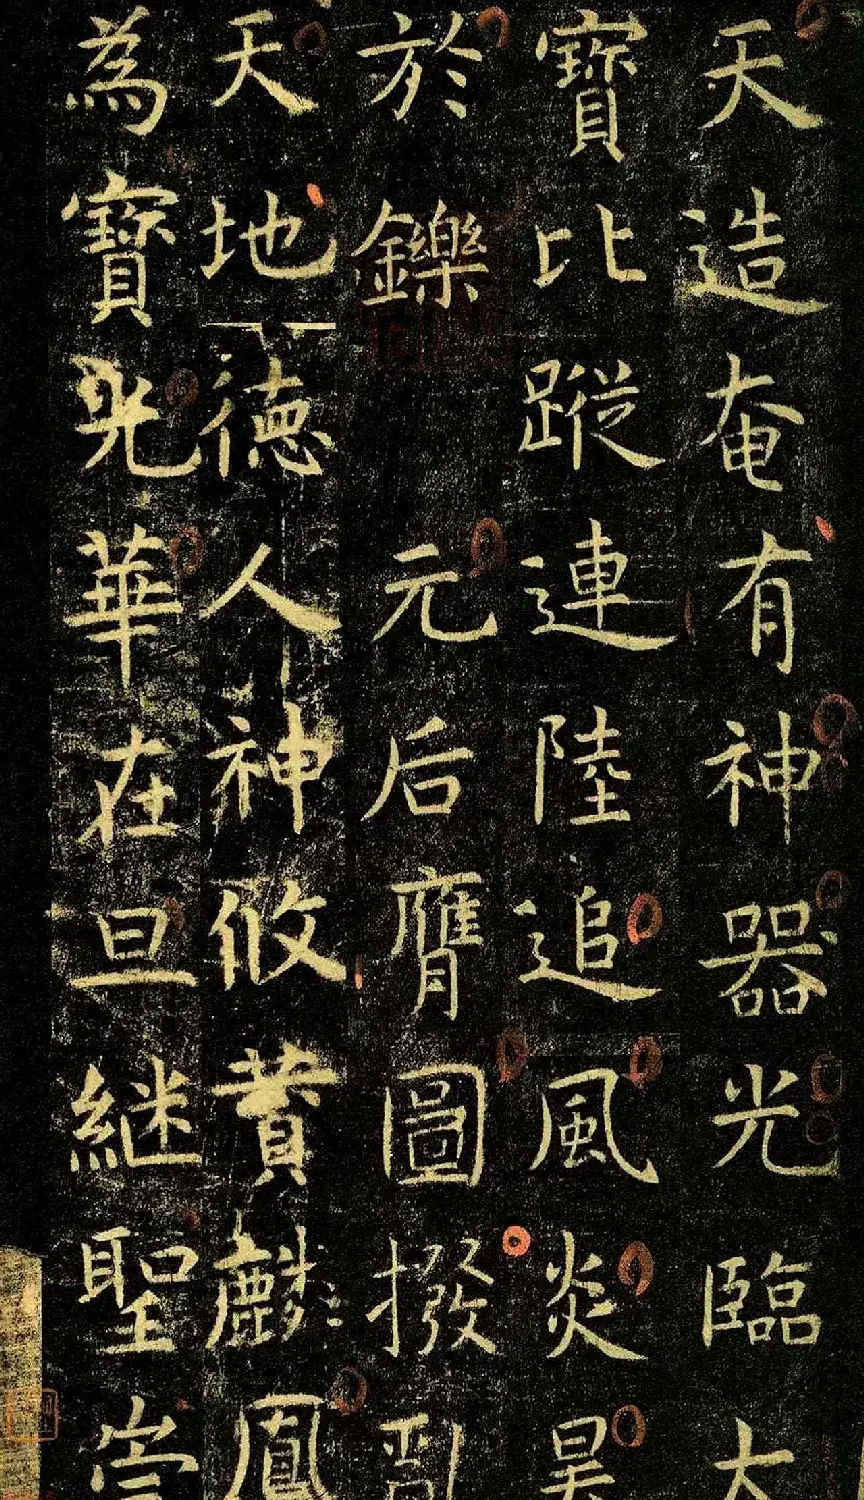 天造奄有神器光臨大
寶比蹤連陸追風炎昊
於鑠　元后膺圖撥亂
天地德人神攸賛麟鳳
為寶光華在旦継聖崇